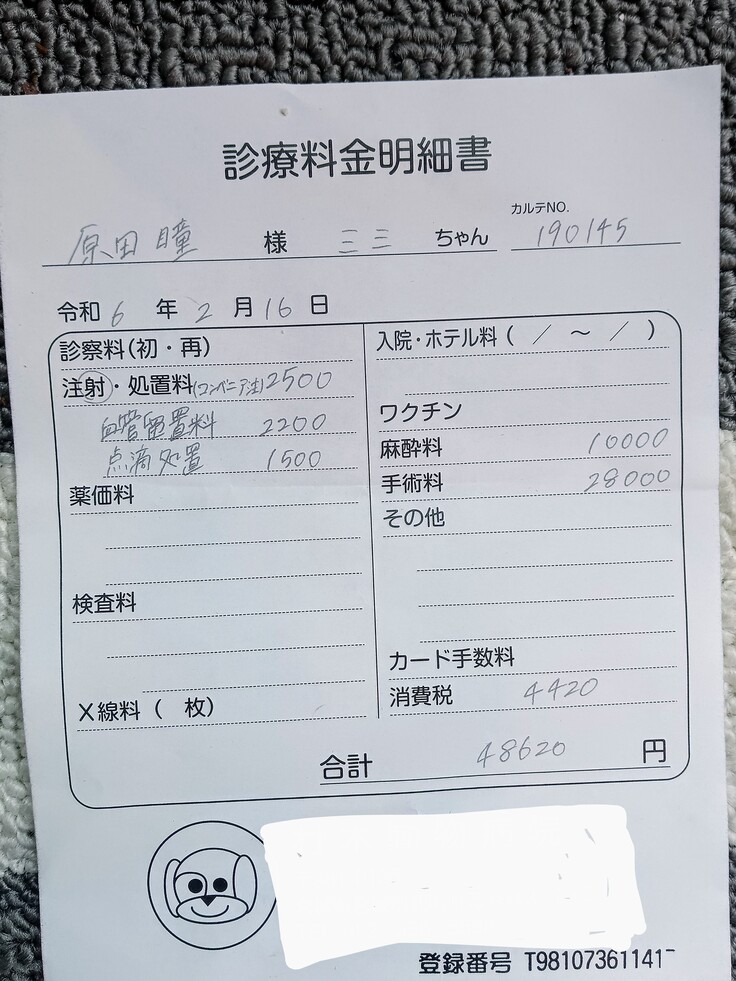 診療料金明細書
カルテNO.
原田 瞳 様 ミミ ちゃん 190145
令和 6 年 2 月 16 日
診察料(初・再)
注射・処置料(コンベニア注) 2500
血管留置料 2200
点滴処置 1500
薬価料
検査料
X線料 ( 枚)
入院・ホテル料 ( / ～ / )
ワクチン
麻酔料 10000
手術料 28000
その他
カード手数料
消費税 4420
合計 48620 円
登録番号 T98107361141